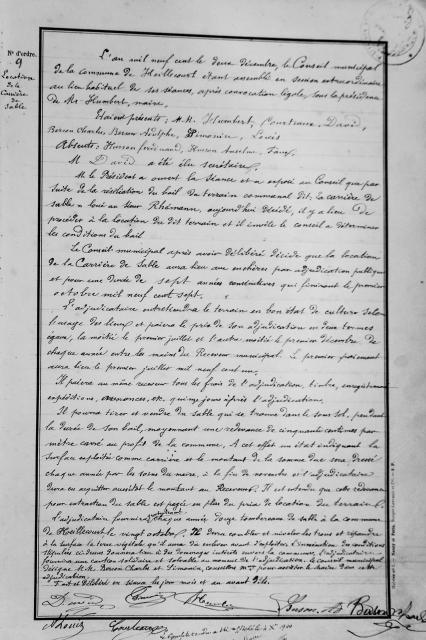 N° d'ordre.
9
Location
de la
Carrière
de
Sable
L'an mil neuf cent le deux décembre, le Conseil municipal
de la commune de Heillecourt étant assemblé en session extraordinaire
au lieu habituel de ses séances, après convocation légale, sous la présidence
de Mr Humbert, maire.
Étaient présents : M.M. Humbert, Courteaux, David,
Berson Charles, Berson Adolphe, Simonin, Louis
Absents : Husson Ferdinand, Husson Anselme,
M David a été élu secrétaire.
M. le Président a ouvert la séance et a exposé au Conseil que par
suite de la résiliation du bail du terrain communal dit : la carrière de
sable à loué au sieur Rhémann, aujourd'hui décédé, il y a lieu de
procéder à la location du dit terrain et il invite le conseil à déterminer
les conditions du bail.
Le Conseil municipal après avoir délibéré décide que la location
de la Carrière de Sable aura lieu aux enchères par adjudication publique
et pour une durée de sept années consécutives qui finiront le premier
octobre mil neuf cent sept.
L'adjudicataire entretiendra le terrain en bon état de culture selon
l'usage des lieux et paiera le prix de son adjudication en deux termes
égaux, la moitié le premier juillet et l'autre moitié le premier décembre de
chaque année entre les mains du Receveur municipal. Le premier paiement
aura lieu le premier juillet mil neuf cent un.
Il paiera au même receveur tous les frais de l'adjudication, timbre, enregistrement
expéditions, annonces, etc. quinze jours après l'adjudication.
Il pourra tirer et vendre du sable qui se trouve dans le sous sol, pendant
la durée de son bail, moyennant une redevance de cinquante centimes par
mètre carré au profit de la commune. A cet effet un état indiquant la
surface exploitée comme carrière et le montant de la somme due sera dressé
chaque année par les soins du maire, à la fin de novembre et l'adjudicataire
devra en acquitter aussitôt le montant au Receveur. Il est entendu que cette redevance
pour extraction de sable est payée en plus du prix de location du terrain.
L'adjudicataire fournira chaque année douze tombereaux de sable à la commune
de Heillecourt, le vingt octobre. Il devra combler et niveler les trous et répandre
à la surface la terre végétale qu'il aura eu
stipulées ci-dessus d'annulation et de dommages intérêts envers la commune, l'adjudicataire
fournira une caution solidaire et solvable au moment de l'adjudication. Le conseil municipal
désigne M.M. Berson Charles et Simonin, conseillers mx pour assister le maire dans cette
adjudication.
Fait et Délibéré en séance les jour mois et an avant dits.
David Simonin Humbert Berson Ad Berson Charles
A Louis Courteaux